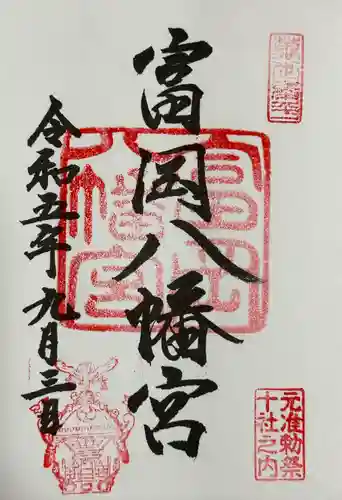 富岡八幡宮
令和五年九月三日
元准勅祭
十社之内